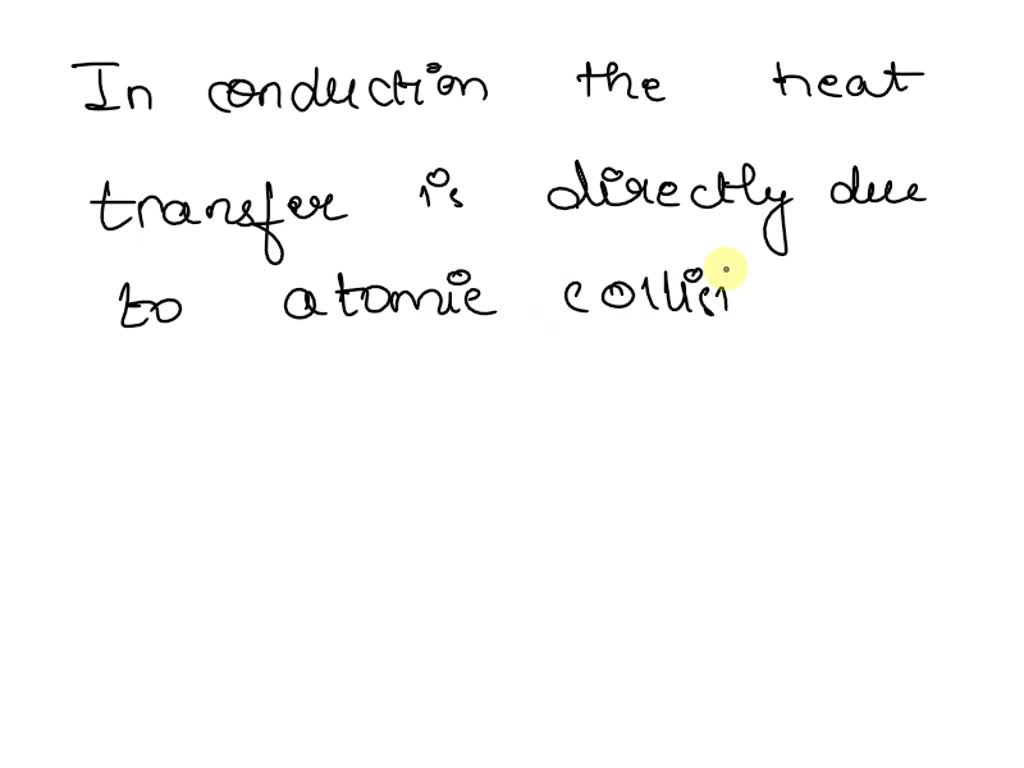 In conduction the heat
transfer is directly due
to atomic collisi